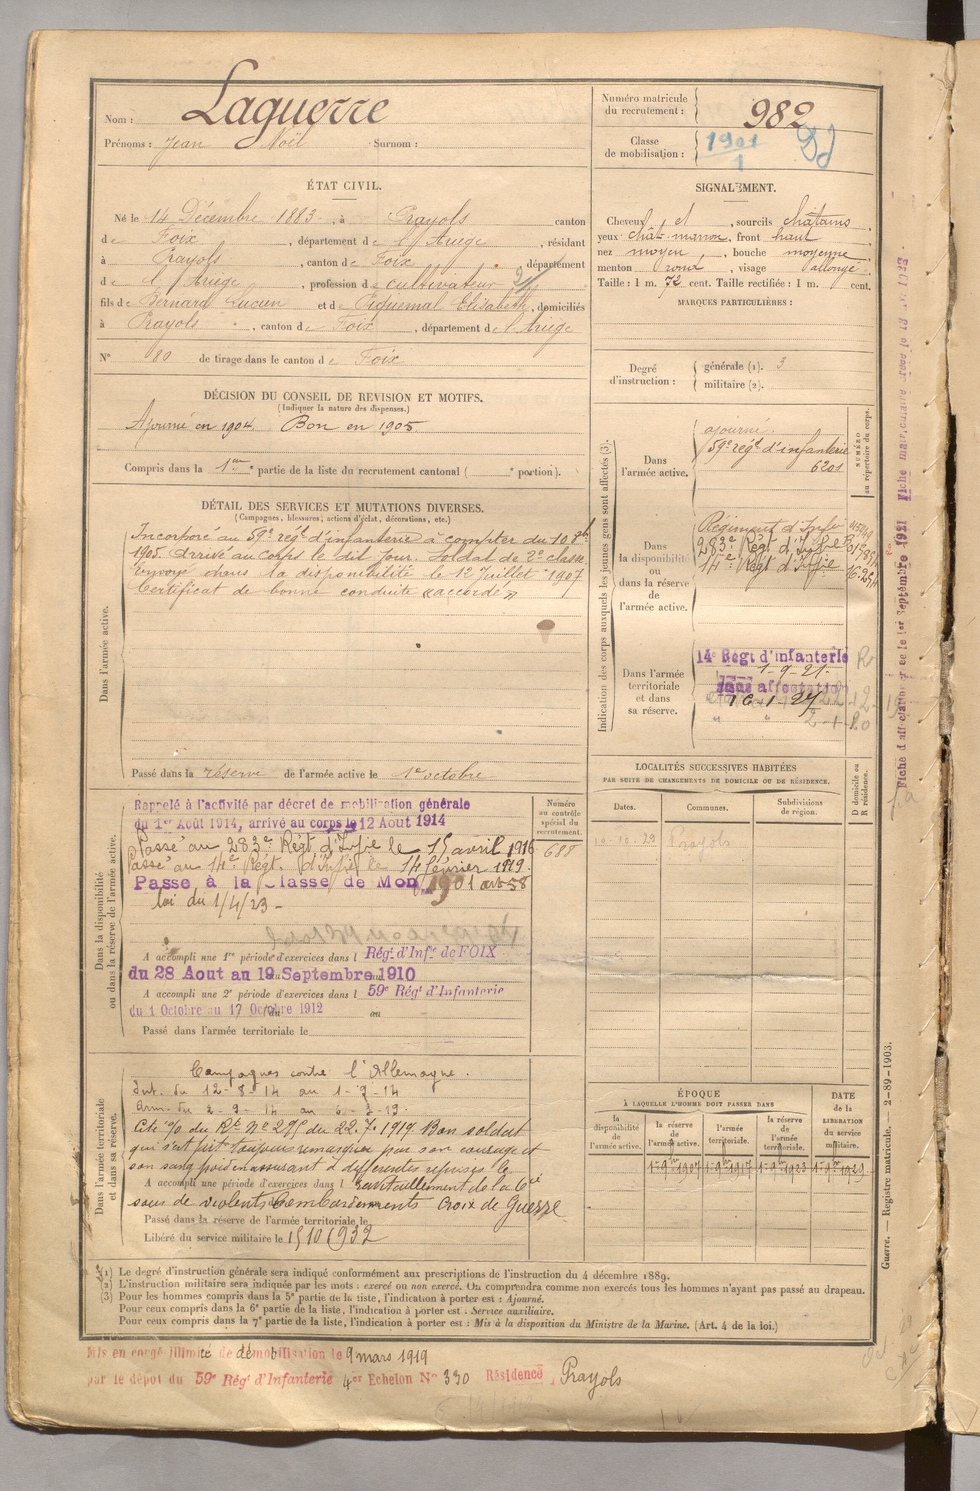 Nom : Laguerre
Prénoms : Jean Noël Surnom :
Numéro matricule du recrutement : 982
Classe de mobilisation : 1901
ÉTAT CIVIL.
Né le 14 Décembre 1883, à Prayols canton
de Foix, département de l'Ariège, résidant
à Prayols, canton de Foix, département
de l'Ariège, profession de cultivateur
fils de Bernard Lucien et de Piquemal Elisabeth, domiciliés
à Prayols, canton de Foix, département de l'Ariège
N° 80 de tirage dans le canton de Foix
SIGNALEMENT.
Cheveux et, sourcils châtains,
yeux chât. marron, front haut
nez moyen, bouche moyenne,
menton rond, visage allongé.
Taille : 1 m. 72 cent. Taille rectifiée : 1 m. cent.
MARQUES PARTICULIÈRES :
Degré d'instruction : générale (1). 3
militaire (2).
DÉCISION DU CONSEIL DE REVISION ET MOTIFS.
(Indiquer la nature des dispenses.)
Ajourné en 1904. Bon en 1905
Compris dans la 1re partie de la liste du recrutement cantonal ( e portion).
DÉTAIL DES SERVICES ET MUTATIONS DIVERSES.
(Campagnes, blessures, actions d'éclat, décorations, etc.)
Dans l'armée active.
Incorporé au 59e régt d'infanterie à compter du 10 8bre
1905. Arrivé au corps le dit jour. Soldat de 2e classe
Envoyé dans la disponibilité le 12 Juillet 1907
Certificat de bonne conduite "accordé"
Passé dans la réserve de l'armée active le 1er octobre
Indication des corps auxquels les jeunes gens sont affectés (3).
NUMÉRO au répertoire du corps.
Dans l'armée active.
ajourné.
59e régt d'infanterie
6201
Dans la disponibilité ou dans la réserve de l'armée active.
Régiment d'Infie
283e Régt d'Infie
14e Régt d'Infie
Dans l'armée territoriale et dans sa réserve.
14e Régt d'Infanterie
1-9-21
Sans affectation
LOCALITÉS SUCCESSIVES HABITÉES
PAR SUITE DE CHANGEMENTS DE DOMICILE OU DE RÉSIDENCE.
D domicile ou R résidence.
Dates. Communes. Subdivisions de région.
Prayols
Dans la disponibilité ou dans la réserve de l'armée active.
Numéro au contrôle spécial du recrutement.
688
Rappelé à l'activité par décret de mobilisation générale
du 1er Août 1914, arrivé au corps le 12 Aout 1914
Passé au 283e Régt d'Infie le 15 avril 1916
Passé au 14e Régt. d'Infie le 14 février 1919.
Passé à la Classe de Mon 1901 art 58
loi du 1/4/23
A accompli une 1re période d'exercices dans l Régt d'Infie de FOIX
du 28 Aout au 19 Septembre 1910
A accompli une 2e période d'exercices dans l 59e Régt d'Infanterie
du 1 Octobre au 17 Octobre 1912 au
Passé dans l'armée territoriale le
Dans l'armée territoriale et dans sa réserve.
Campagnes contre l'Allemagne.
Int. du 12-8-14 au 1-9-14
Arm. du 2-9-14 au
Cité O/ du Rt N° 295 du 22.7.1919. Bon soldat
qui s'est fait toujours remarquer par son courage et
son sang froid en assurant à différentes reprises le
A accompli une période d'exercices dans l ravitaillement de la Cie
sous de violents bombardements Croix de Guerre
Passé dans la réserve de l'armée territoriale le
Libéré du service militaire le 15 10 1932
ÉPOQUE
À LAQUELLE L'HOMME DOIT PASSER DANS
la disponibilité de l'armée active. la réserve de l'armée active. l'armée territoriale. la réserve de l'armée territoriale.
DATE de la LIBÉRATION du service militaire.
1er 9bre 1907 1er 9bre 1917 1er 9bre 1923 1er 9bre 1929
(1) Le degré d'instruction générale sera indiqué conformément aux prescriptions de l'instruction du 4 décembre 1889.
(2) L'instruction militaire sera indiquée par les mots : exercé ou non exercé. On comprendra comme non exercés tous les hommes n'ayant pas passé au drapeau.
(3) Pour les hommes compris dans la 5e partie de la liste, l'indication à porter est : Ajourné.
Pour ceux compris dans la 6e partie de la liste, l'indication à porter est : Service auxiliaire.
Pour ceux compris dans la 7e partie de la liste, l'indication à porter est : Mis à la disposition du Ministre de la Marine. (Art. 4 de la loi.)
Mis en congé illimité de démobilisation le 9 mars 1919
par le dépôt du 59e Régt d'Infanterie 4e Echelon N° 330 Résidence Prayols
Guerre. — Registre matricule. — 2-89-1903.